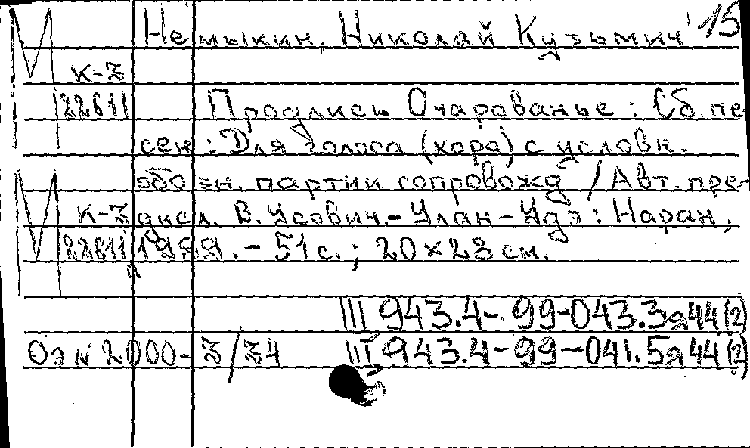 М Немыкин, Николай Кузьмич 15
К-3
22611 Продлись Очарованье: Сб. пе
сен: Для голоса (хора) с условн.
обозн. партии сопровожд / Авт. пре-
М К-3 дисл. В. Усович.- Улан-Удэ: Наран,
22611 1999.- 51 с.; 20×28 см.
III 943.4-99-043.3я44(2)
Оэ N 2000-3/34 III 943.4-99-041.5я44(2)